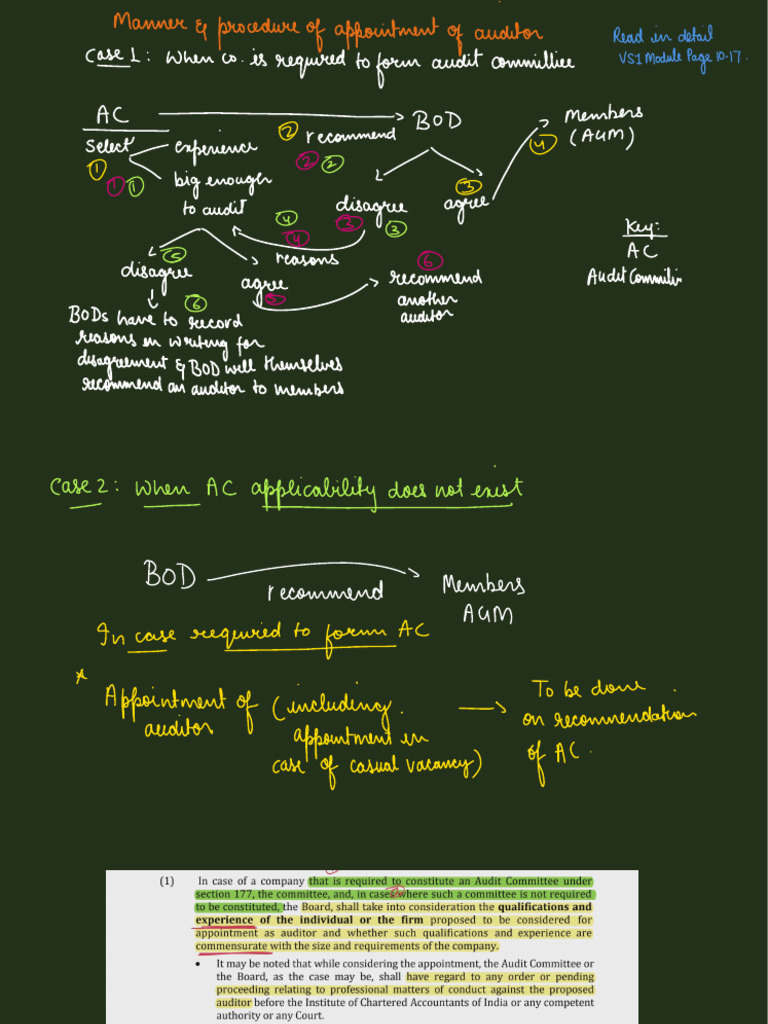 Manner & procedure of appointment of auditor
Read in detail
VS1 Module Page 10.17.
Case 1: When co. is required to form audit committiee
AC
BOD
Members
(AGM)
Select
experience
2 recommend
2 2
4
1
1 1
big enough
to audit
disagree
3
agree
3
3
4
4
reasons
Key:
AC
Audit Committ
5
disagree
agree
5
6
recommend
another
auditor
6
BODs have to record
reasons in writing for
disagreement & BOD will themselves
recommend an auditor to members
Case 2: When AC applicability does not exist
BOD
recommend
Members
AGM
In case required to form AC
* Appointment of
auditor
(including
appointment in
case of casual vacancy)
To be done
on recommendation
of AC.
(1) In case of a company that is required to constitute an Audit Committee under
section 177, the committee, and, in cases where such a committee is not required
to be constituted, the Board, shall take into consideration the qualifications and
experience of the individual or the firm proposed to be considered for
appointment as auditor and whether such qualifications and experience are
commensurate with the size and requirements of the company.
• It may be noted that while considering the appointment, the Audit Committee or
the Board, as the case may be, shall have regard to any order or pending
proceeding relating to professional matters of conduct against the proposed
auditor before the Institute of Chartered Accountants of India or any competent
authority or any Court.